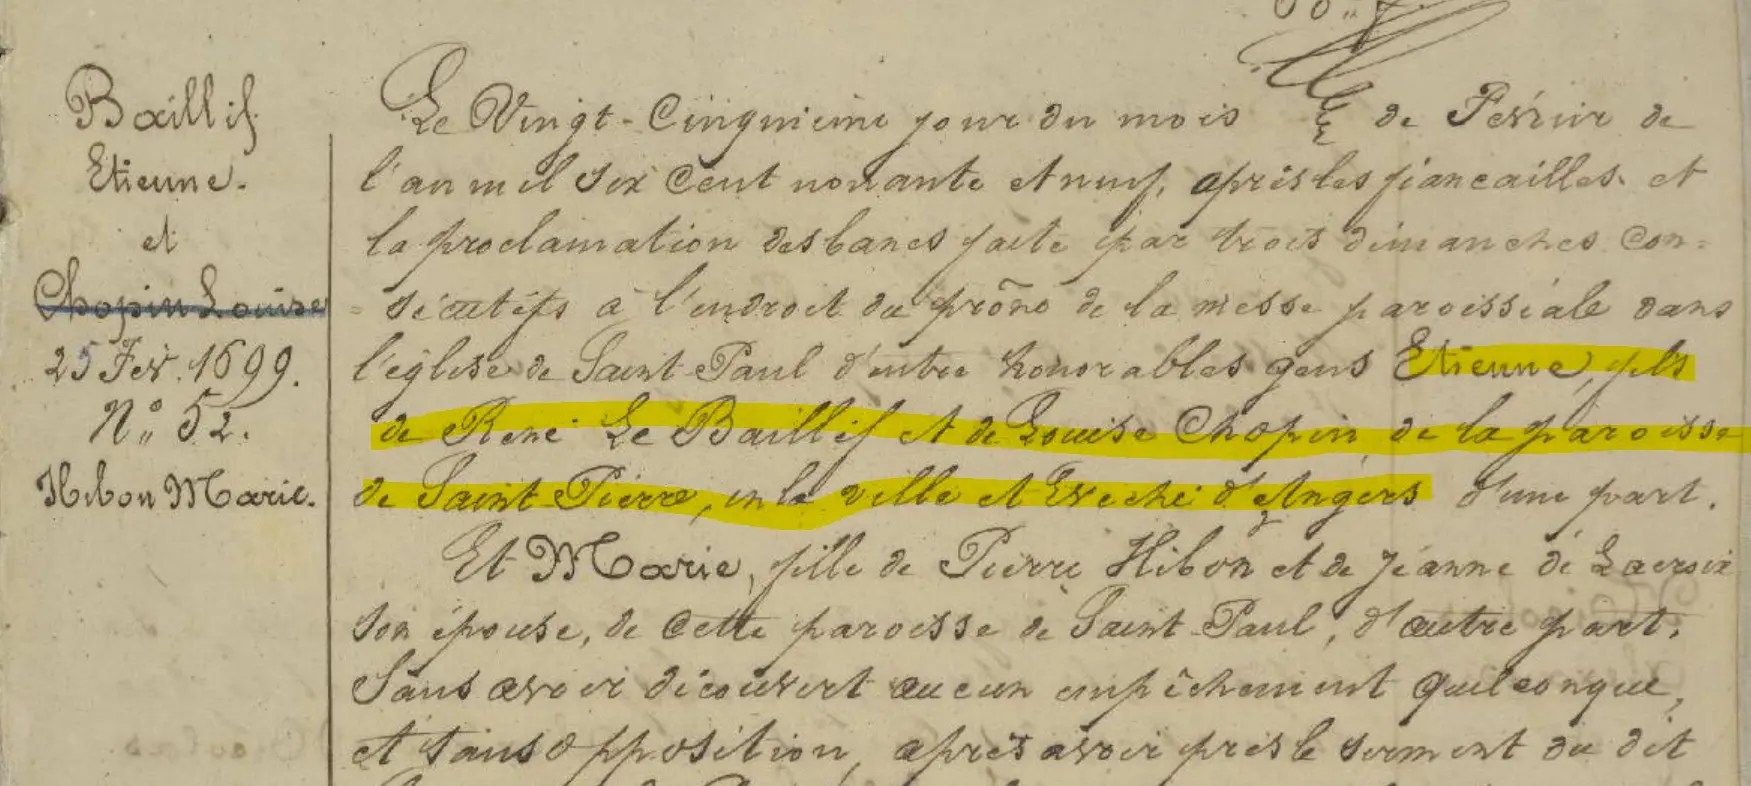 Baillif
Etienne.
et
Chopin Louise
25 Fév. 1699.
N° 52.
Hibon Marie.
Le Vingt-Cinquième jour du mois de Février de
l'an mil six Cent nonante et neuf, après les fiancailles et
la proclamation des bancs faite par trois dimanches Con=
=sécutifs à l'endroit du prône de la messe paroissiale dans
l'église de Saint-Paul d'entre honorables gens Etienne, fils
de René Le Baillif et de Louise Chopin, de la paroisse
de Saint-Pierre, en la ville et Evêché d'Angers d'une part.
Et Marie, fille de Pierre Hibon et de Jeanne de Lacroix
son épouse, de cette paroisse de Saint Paul, d'autre part,
Sans avoir découvert aucun empêchement quelconque,
et sans opposition, après avoir pris le serment du dit